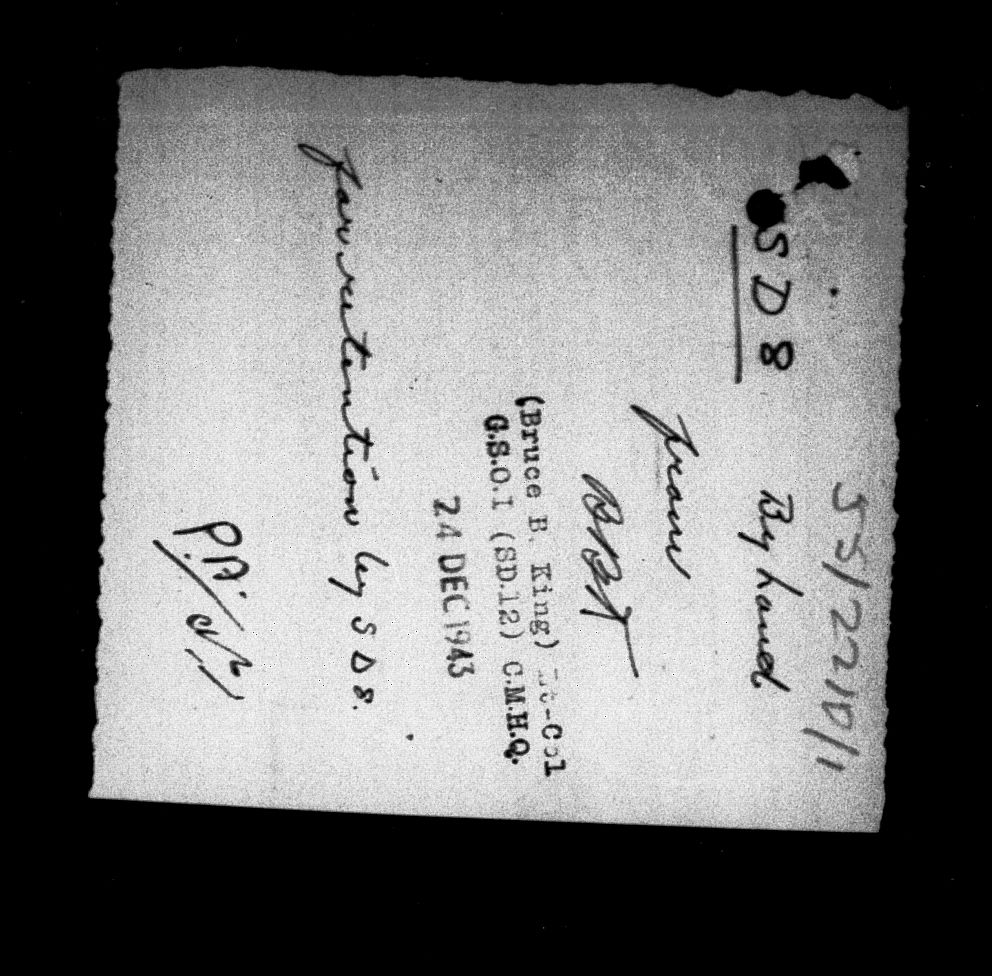 55/2210/1
SD8 By hand
from
BBK
(Bruce B. King) Lt-Col
G.S.O.1 (SD.12) C.M.H.Q.
24 DEC 1943
for retention by SD8.
P.A.